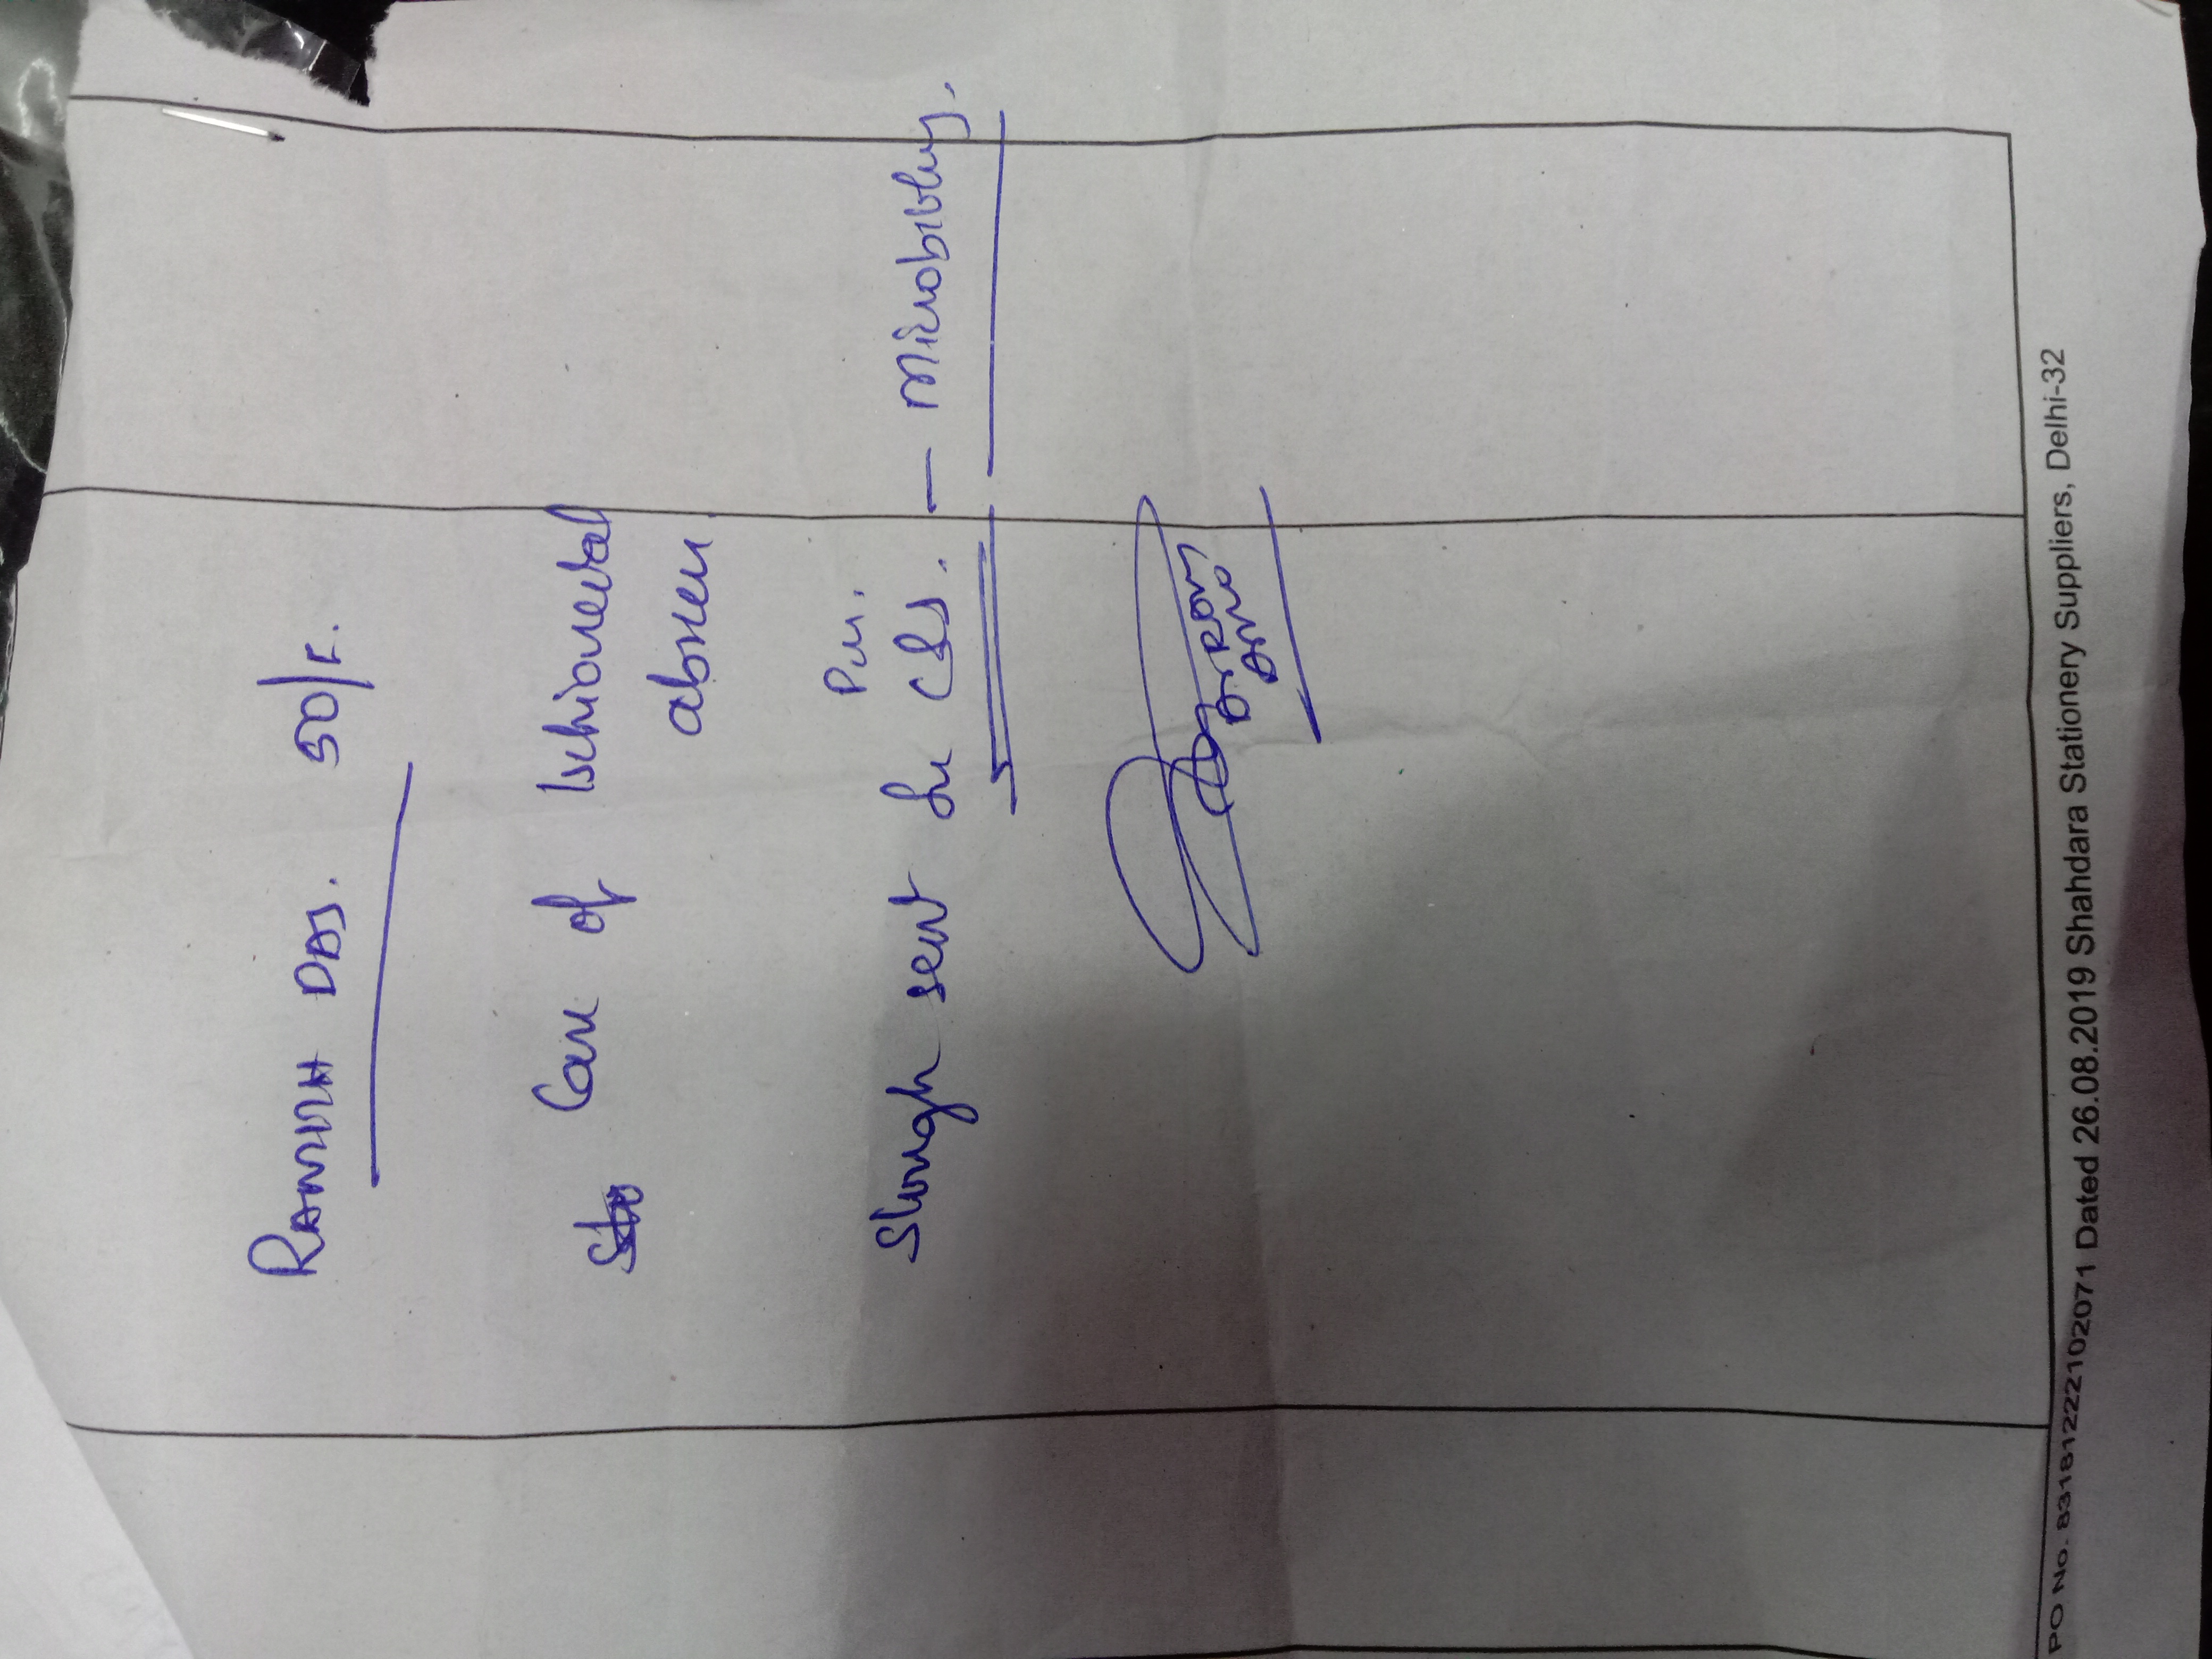 DAS. 50/
Case of Ischiorectal
abscess.
Pus.
Slough sent for C&S. — Microbiology.
PO No. 83181222102071 Dated 26.08.2019 Shahdara Stationery Suppliers, Delhi-32